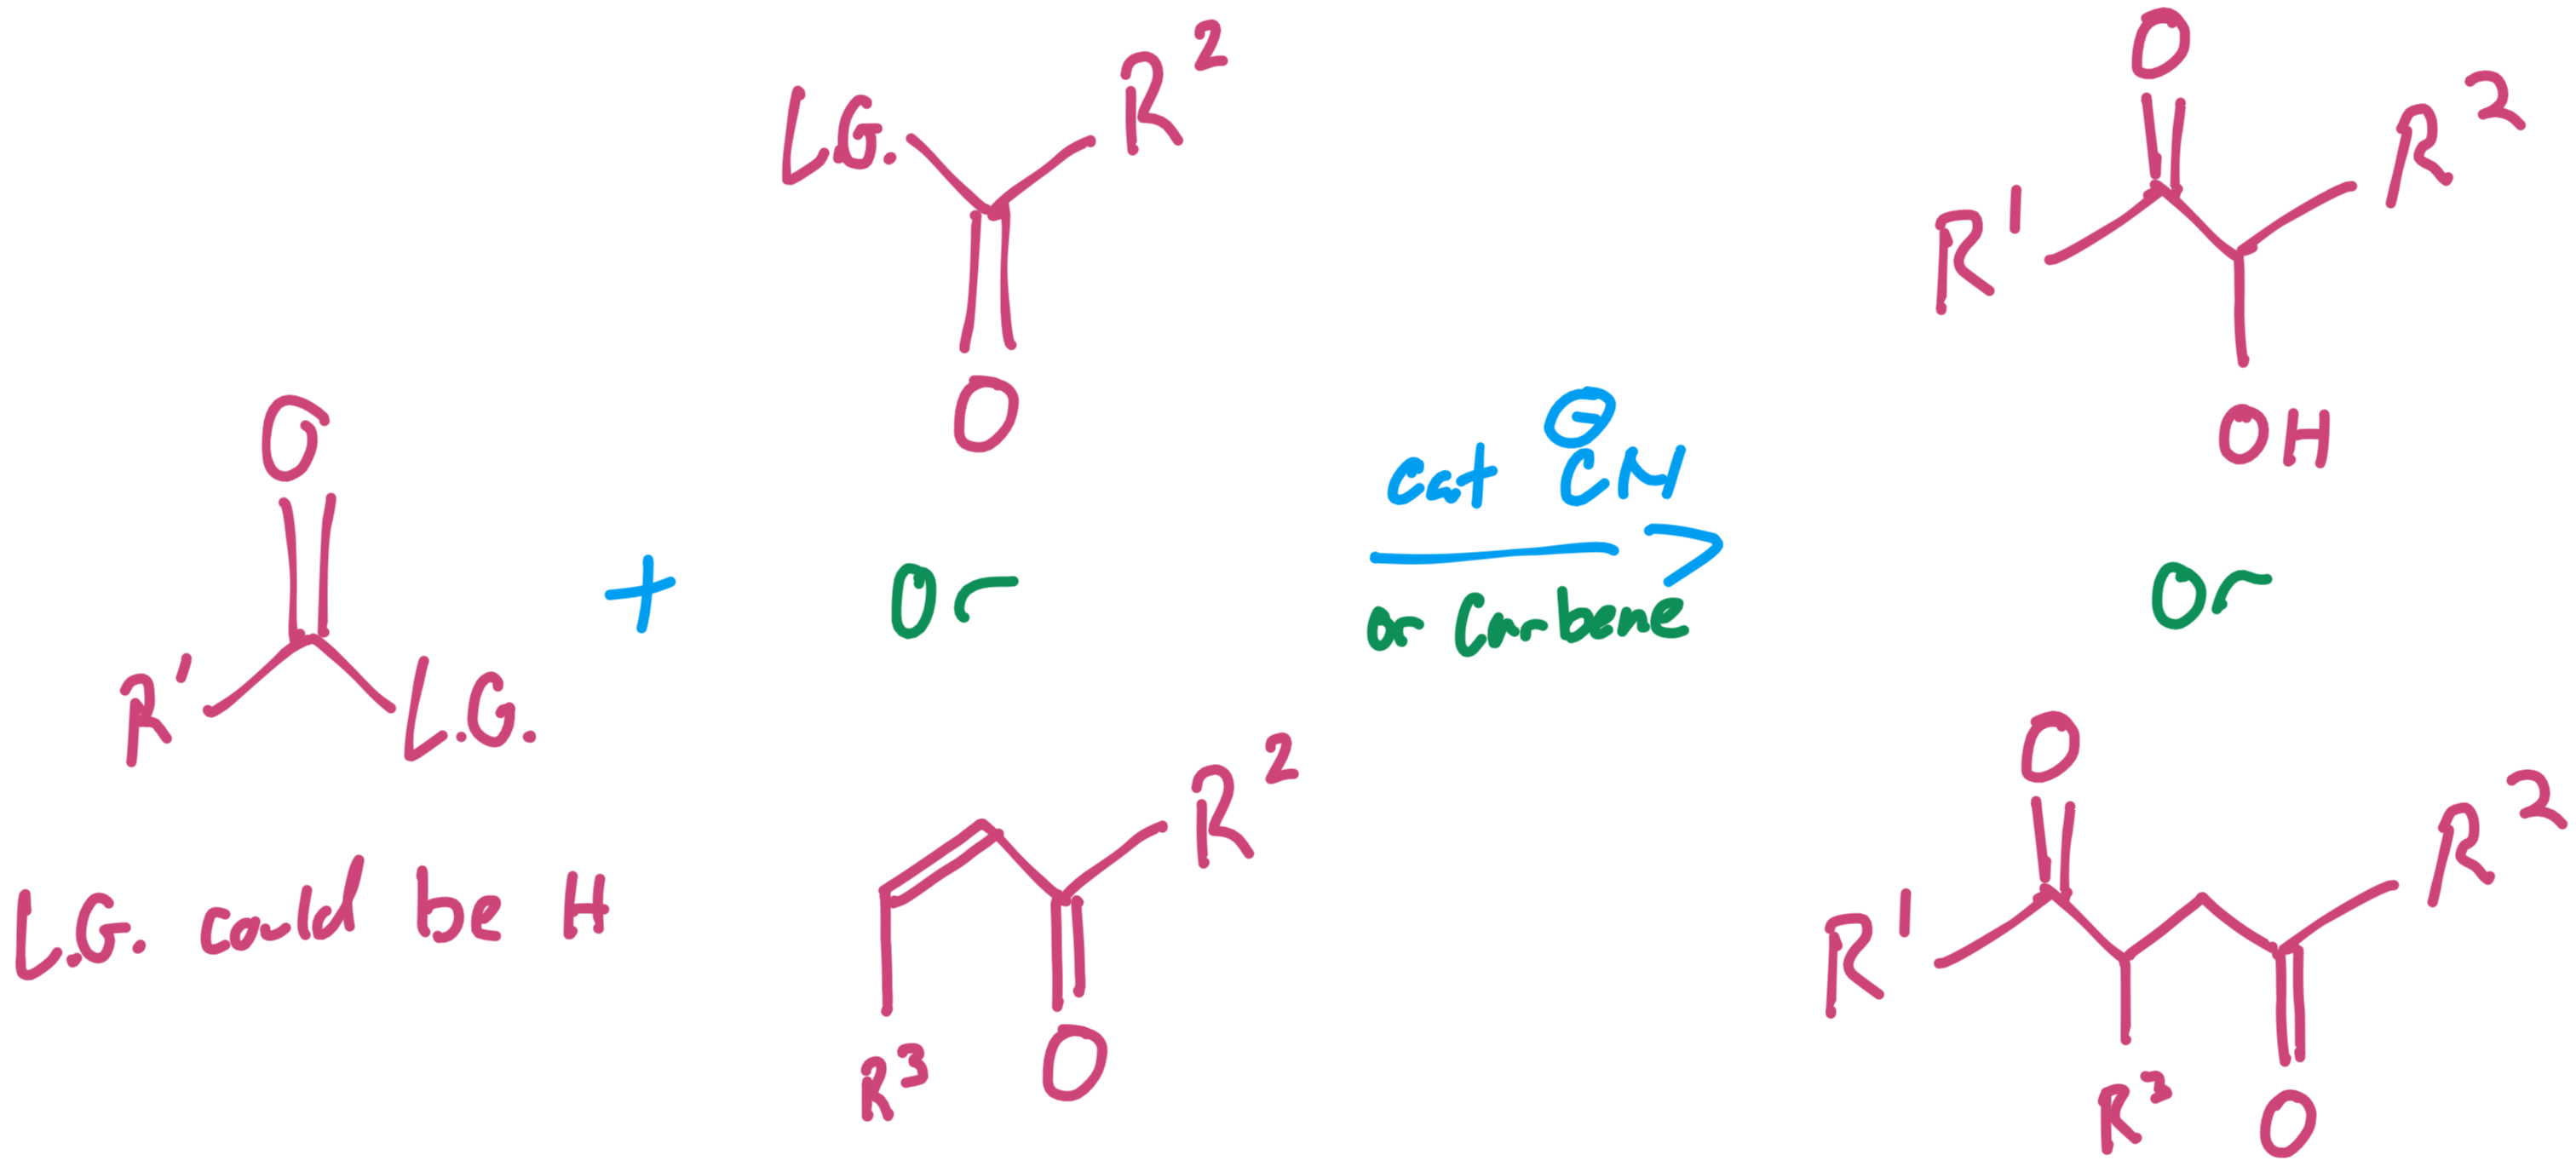 O
R'
L.G.
L.G. could be H
+
L.G.
R²
O
Or
R²
R³
O
cat ⊖CN
or Carbene
O
R¹
R²
OH
Or
O
R¹
R²
R³
O